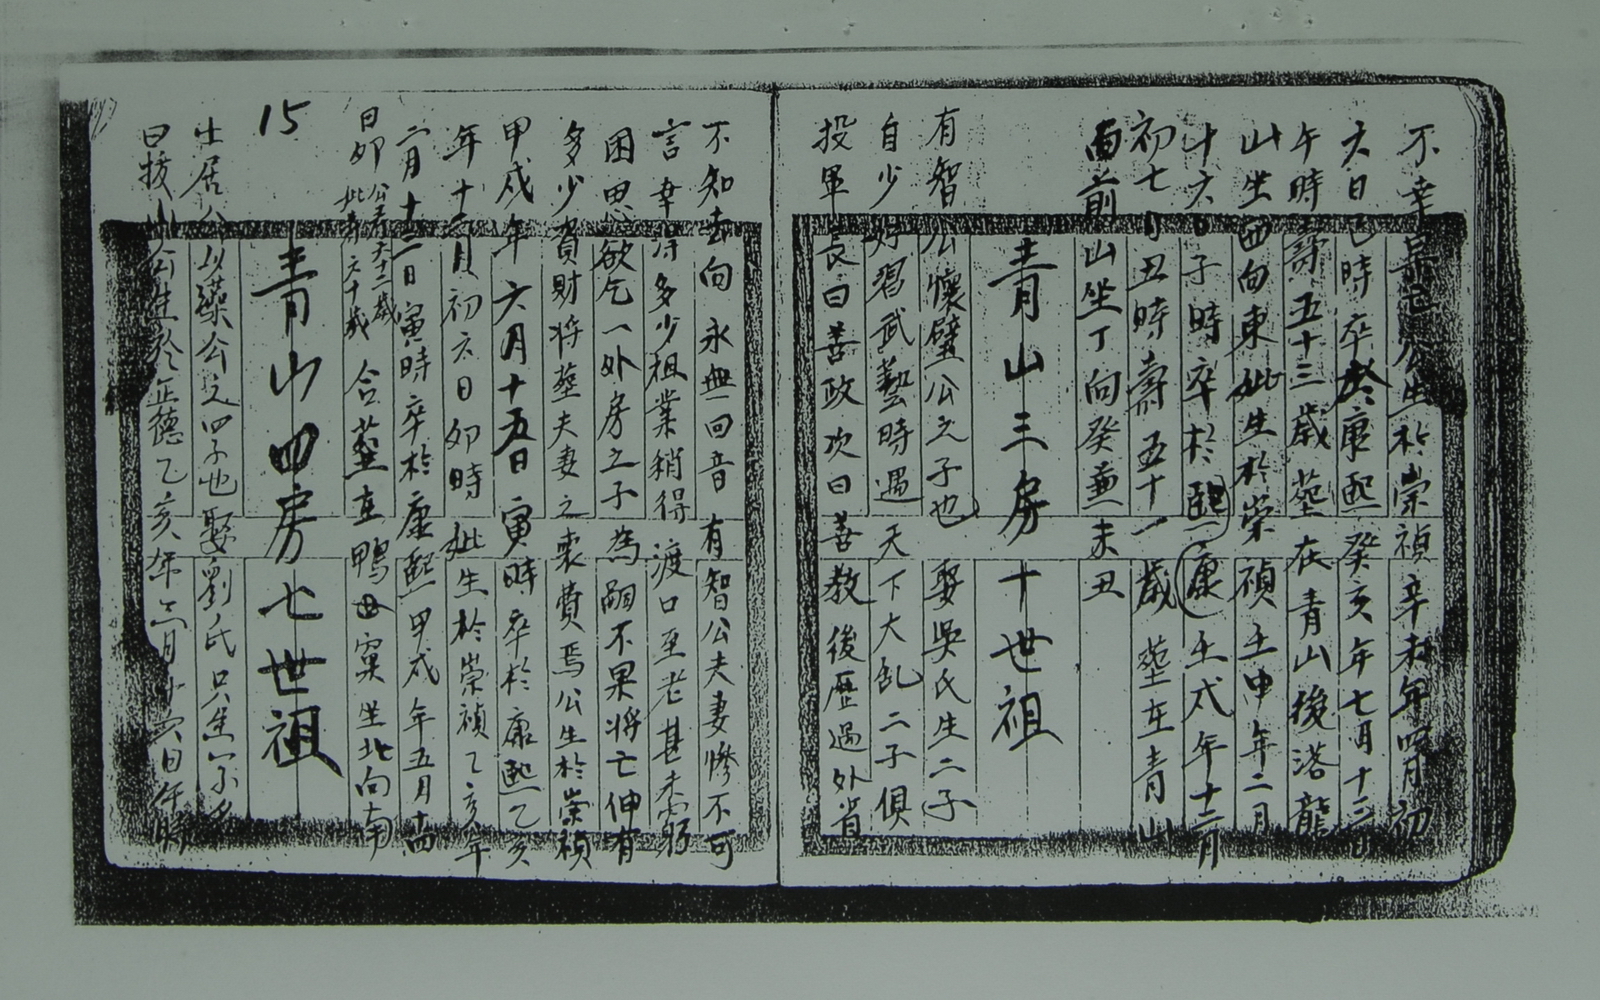 不幸 公生於崇禎辛未年四月初
六日巳時卒於康熙癸亥年七月十三日
午時壽五十三歲塟在青山後落龍
山坐西向東妣生於崇禎壬申年二月
十六日子時卒於熙康壬戌年十二月
初七日丑時壽五十一歲塟在青山
面前山坐丁向癸兼未丑
青山三房十世祖
有智公懷璧公之子也娶吳氏生二子
自少好習武藝時遇天下大乱二子俱
投軍長曰善政次曰善教後歷過外省
不知去向永無回音有智公夫妻慘不可
言幸得多少祖業稍得渡口至老甚未窮
困思欲乞一外房之子為嗣不果將亡伸有
多少資財将塟夫妻之喪費焉公生於崇禎
甲戍年六月十五日寅時卒於康熙乙亥
年十二月初六日卯時妣生於崇禎乙亥年
二月十二日寅時卒於康熙甲戍年五月十四
日卯公壽六十二歲妣壽六十歲合塟在鴨母窠坐北向南
15
青山四房七世祖
士居公以藻公之四子也娶劉氏
曰援山公生於正德乙亥年六月廿六日午時